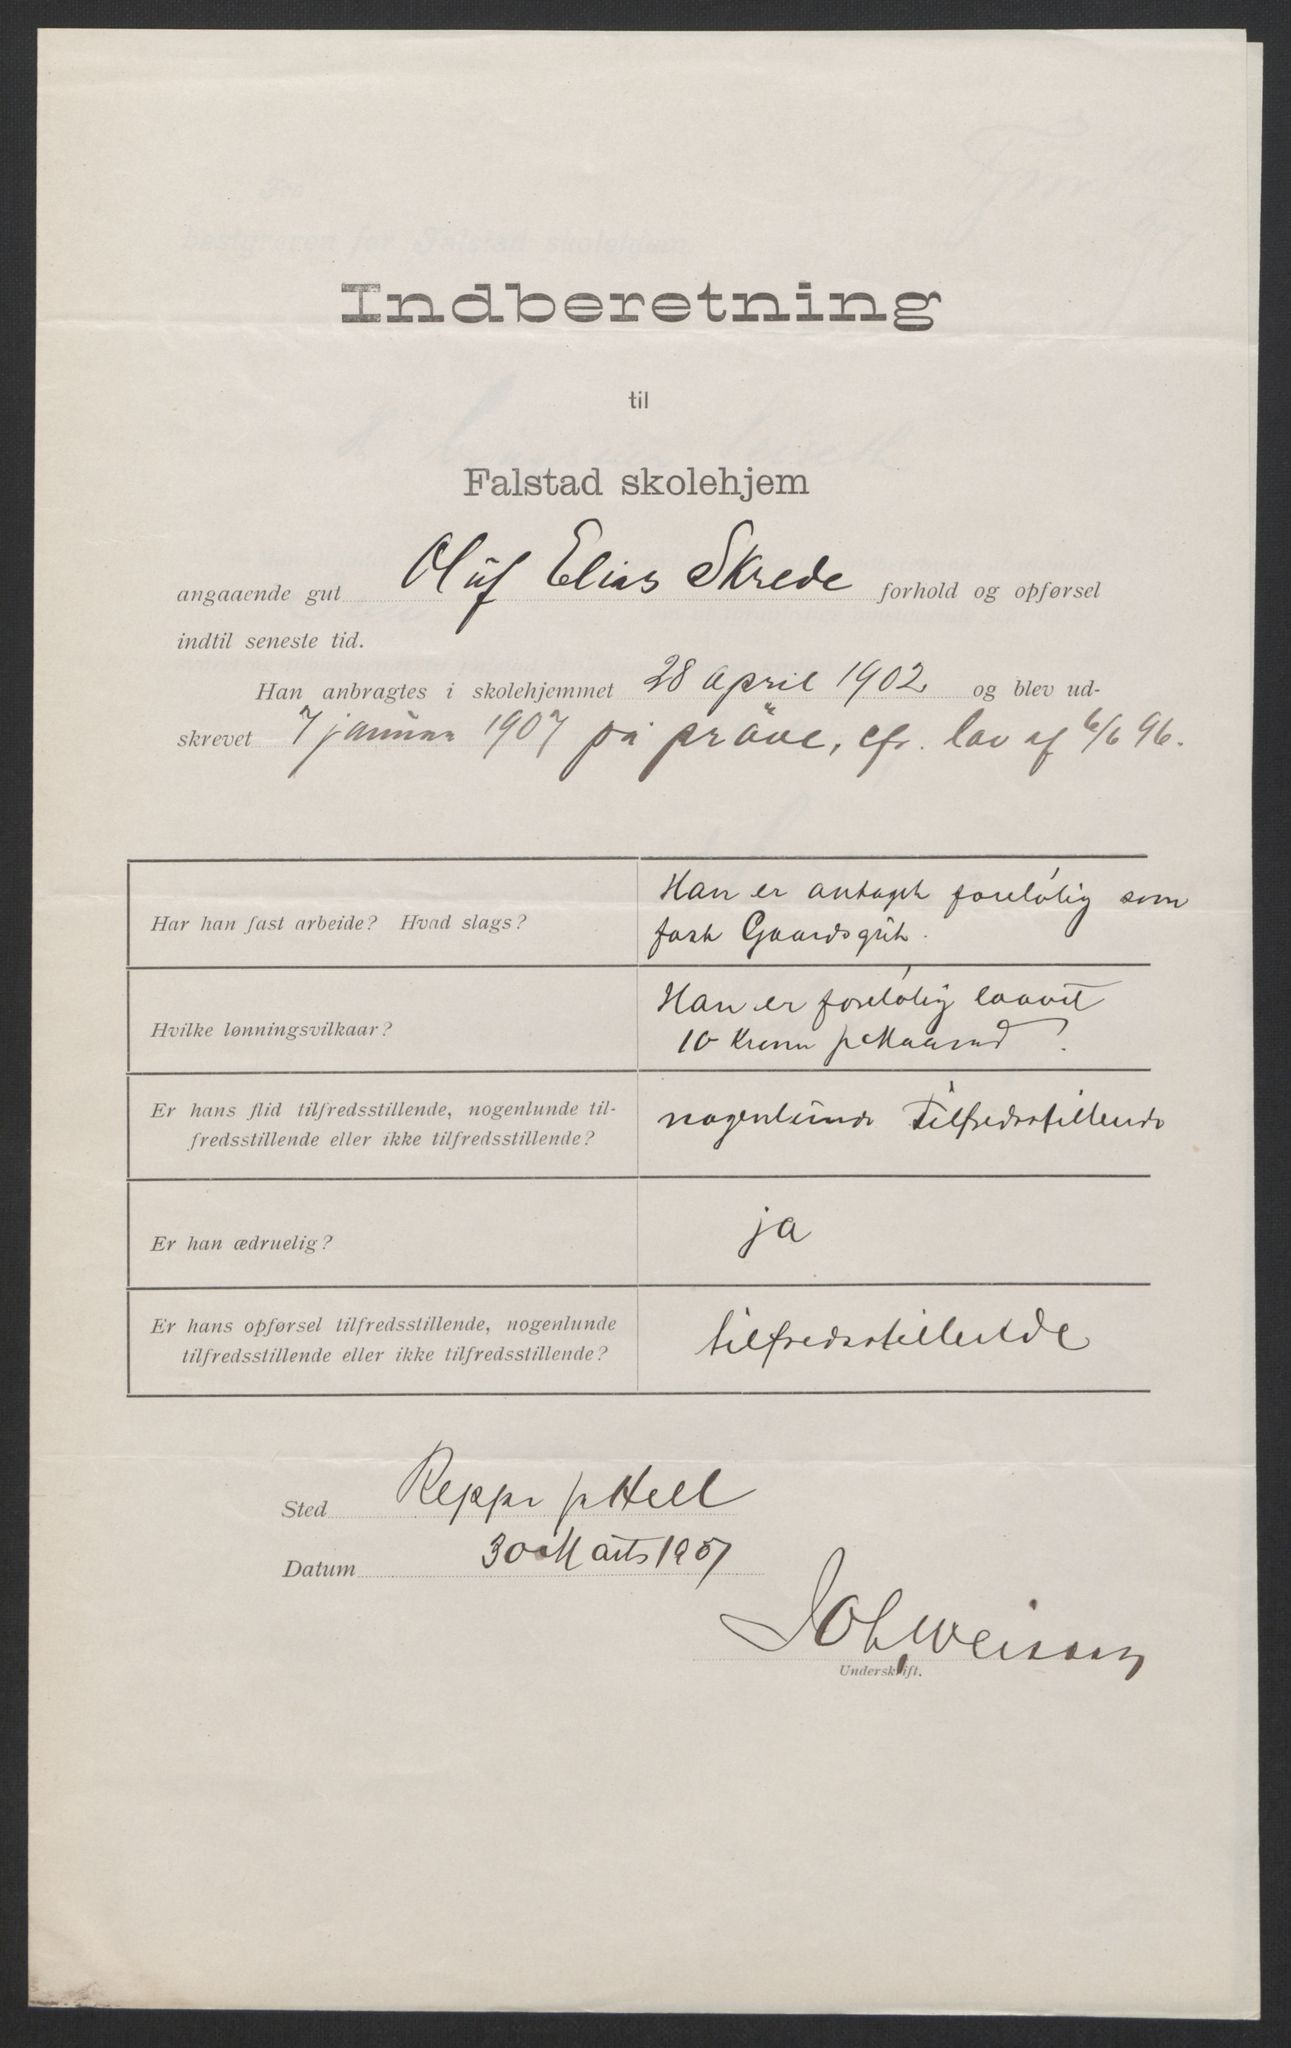 Indberetning
til
Falstad skolehjem
angaaende gut Oluf Elias Skrede forhold og opførsel
indtil seneste tid.
Han anbragtes i skolehjemmet 28 april 1902 og blev ud-
skrevet 7 januar 1907 på pröve, cfr. lov af 6/6 96.
Har han fast arbeide? Hvad slags?
Han er antaget foreløbig som
fast Gaardsgut.
Hvilke lønningsvilkaar?
Han er foreløbig lovet
10 Kroner pr Maaned
Er hans flid tilfredsstillende, nogenlunde til-
fredsstillende eller ikke tilfredsstillende?
nogenlunde tilfredsstillende
Er han ædruelig?
ja
Er hans opførsel tilfredsstillende, nogenlunde
tilfredsstillende eller ikke tilfredsstillende?
tilfredsstillende
Sted Reppe pr Hell
Datum 30 Marts 1907
Underskrift.